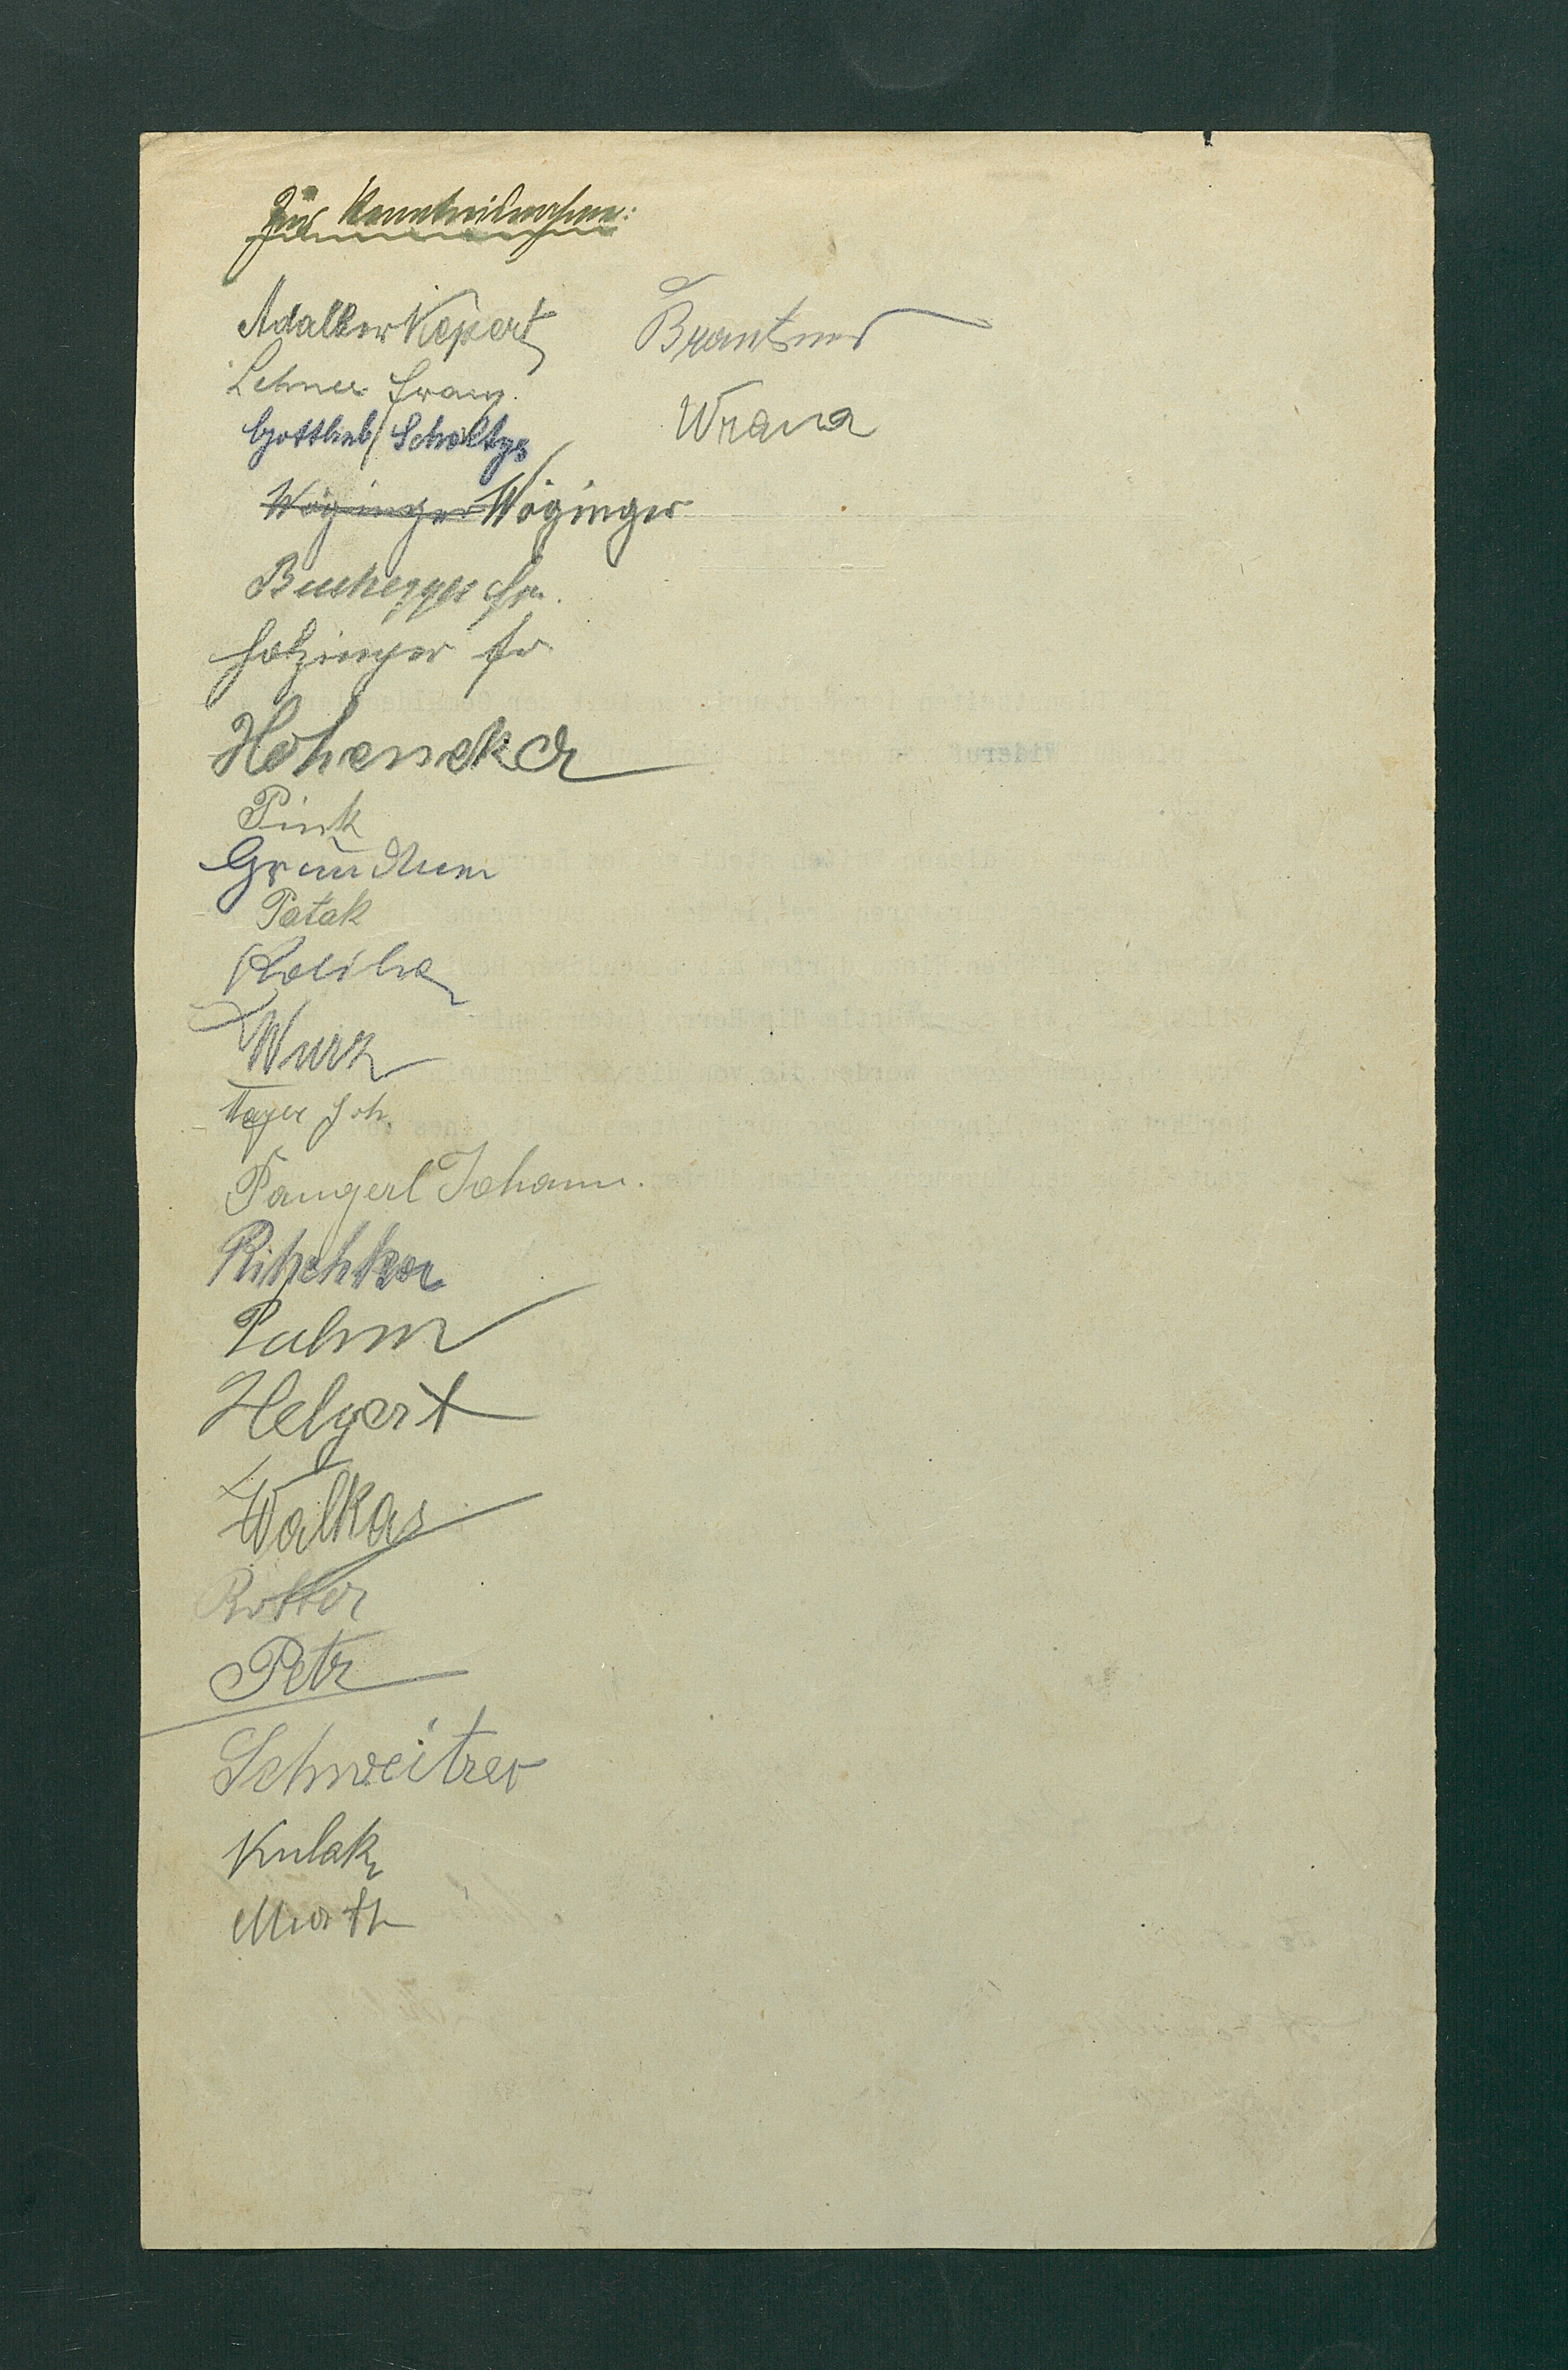 Zur Kenntnisnahme:
Adalber Kepert
Lehner Franz.
Gottlieb Scholtys
Wöginger Wöginger
Buchegger Fr.
Hotzinger Fr
Hohenecker
Pink
Patak
Wurz
Mayer Joh.
Pangerl Johann.
Ritschker
Palm
Helgert
Walkas
Rotter
Petr
Schweitzer
Kulak
Murth
Brantner
Wrana